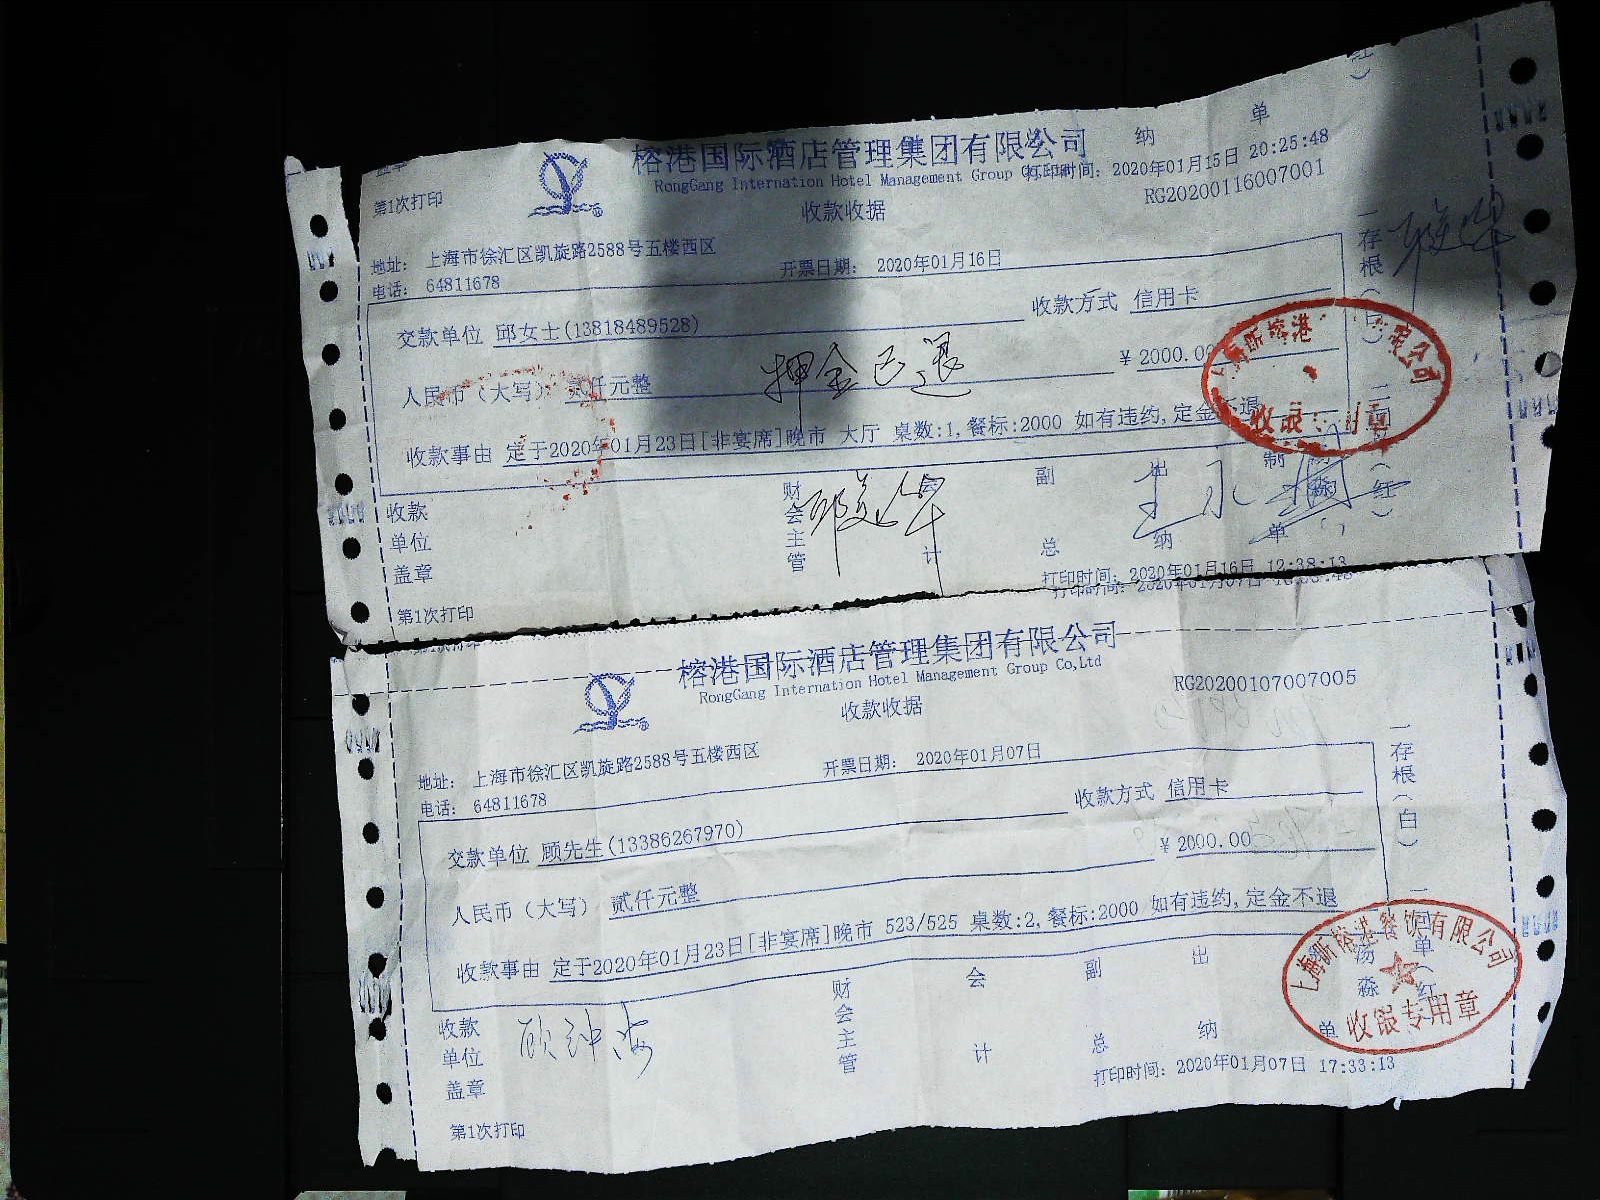 纳 单
榕港国际酒店管理集团有限公司
打印时间: 2020年01月15日 20:25:48
第1次打印
RongGang Internation Hotel Management Group Co,Ltd
RG20200116007001
收款收据
地址: 上海市徐汇区凯旋路2588号五楼西区
开票日期: 2020年01月16日
电话: 64811678
交款单位 邱女士(13818489528)
收款方式 信用卡
人民币(大写) 贰仟元整
押金已退
¥ 2000.00
收款事由 定于2020年01月23日[非宴席]晚市 大厅 桌数:1,餐标:2000 如有违约,定金不退
一存根(白) 二回单(红)
收款单位盖章
财会主管
会计
副总
出纳
制单
打印时间: 2020年01月16日 12:38:13
第1次打印
榕港国际酒店管理集团有限公司
RongGang Internation Hotel Management Group Co,Ltd
RG20200107007005
收款收据
地址: 上海市徐汇区凯旋路2588号五楼西区
开票日期: 2020年01月07日
电话: 64811678
交款单位 顾先生(13386267970)
收款方式 信用卡
人民币(大写) 贰仟元整
¥ 2000.00
收款事由 定于2020年01月23日[非宴席]晚市 523/525 桌数:2,餐标:2000 如有违约,定金不退
一存根(白) 二回单(红)
上海昕榕港餐饮有限公司
收银专用章
收款单位盖章
顾钟海
财会主管
会计
副总
出纳
单
汤淼
打印时间: 2020年01月07日 17:33:13
第1次打印